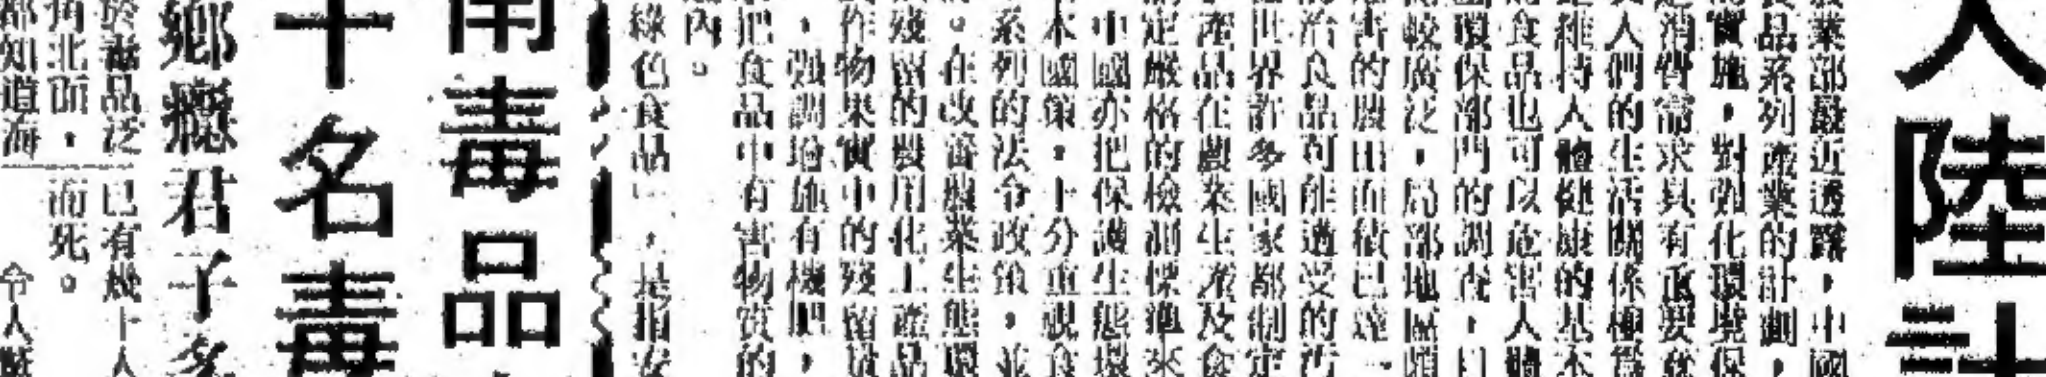 人陸計
業部最近透露，中國
品系列產業的計劃，
實施，對強化環境保
消費需求具有重要
人們的生活關係極爲
維持人體健康的基本
食品也可以危害人體
環保部門的調查，
較廣泛，局部地區
害的農田面積已達一
食品可能遭受的污
世界許多國家都制定
產品在農業生產及食
定嚴格的檢測標準來
中國亦把保護生態環
本國策，十分重視食
系列的法令政策，並
。在改善農業生態環
殘留的農用化工產品
作物果實中的殘留量
，強調增施有機肥，
把食品中有害物質的
內。
綠色食品，是指安
毒品
十名毒
鄉癮君子多
於毒品泛
已有幾十人
角北面，
而死。
都知道海
令人